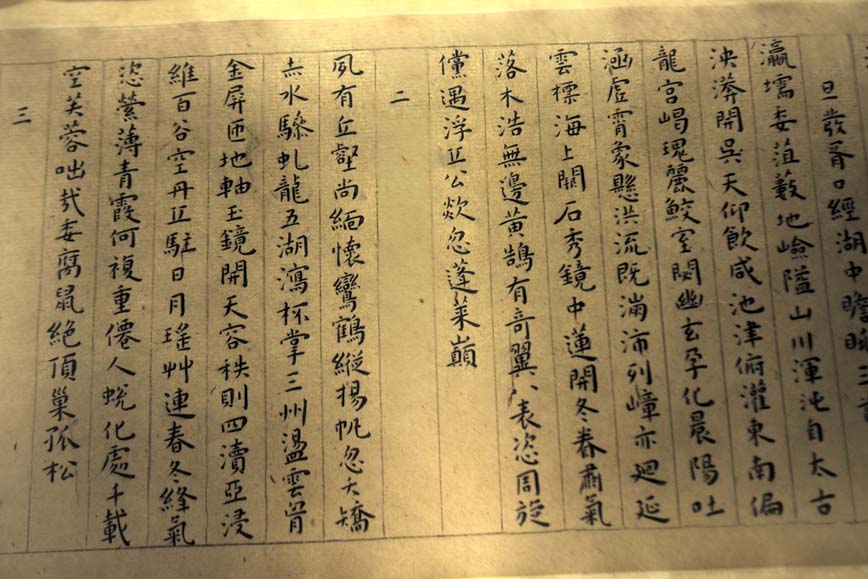 旦發胥口經湖中瞻眺三首
瀛壖委菹藪地嶮隘山川渾沌自太古
泱漭開吳天仰飲咸池津俯灌東南偏
龍宮嵑瑰麗鮫室閟幽玄孕化晨陽吐
涵虛霄象懸洪流既瀰沛列嶂亦迴延
雲標海上闕石秀鏡中蓮開冬春肅氣
落木浩無邊黃鵠有奇翼八表恣周旋
儻遇浮丘公欻忽蓬萊巔
二
夙有丘壑尚緬懷鸞鶴縱揚帆忽夭矯
赤水驂虬龍五湖瀉杯掌三州盪雲胷
金屏匝地軸玉鏡開天容秩則四瀆亞浸
維百谷空丹丘駐日月瑤艸連春冬絳氣
恣縈薄青霞何複重僊人蛻化處千載
空芙蓉咄哉委腐鼠絕頂巢孤松
三